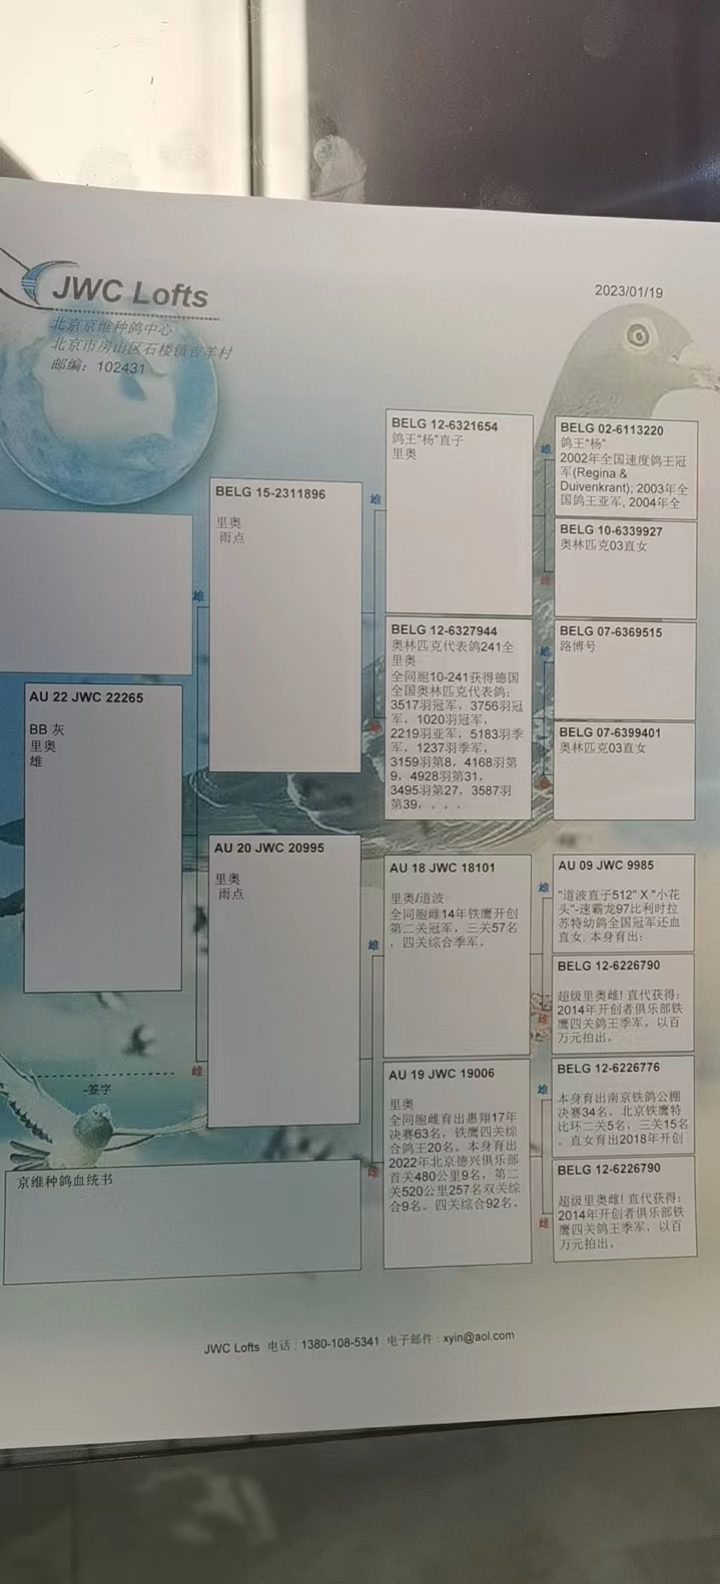 JWC Lofts
2023/01/19
北京京维种鸽中心
北京市房山区石楼镇吉羊村
邮编：102431
雄
BELG 15-2311896
里奥
雨点
AU 22 JWC 22265
BB 灰
里奥
雄
雌
AU 20 JWC 20995
里奥
雨点
雄
BELG 12-6321654
鸽王"杨"直子
里奥
雌
BELG 12-6327944
奥林匹克代表鸽241全
里奥
全同胞10-241获得德国
全国奥林匹克代表鸽：
3517羽冠军，3756羽冠
军，1020羽冠军，
2219羽亚军，5183羽季
军，1237羽季军，
3159羽第8，4168羽第
9，4928羽第31，
3495羽第27，3587羽
第39，．．．
雄
AU 18 JWC 18101
里奥/道波
全同胞雌14年铁鹰开创
第二关冠军，三关57名
，四关综合季军。
雌
AU 19 JWC 19006
里奥
全同胞雌育出惠翔17年
决赛63名，铁鹰四关综
合鸽王20名。本身育出
2022年北京德兴俱乐部
首关480公里9名，第二
关520公里257名双关综
合9名。四关综合92名。
雄
BELG 02-6113220
鸽王"杨"
2002年全国速度鸽王冠
军(Regina &
Duivenkrant); 2003年全
国鸽王亚军, 2004年全
雌
BELG 10-6339927
奥林匹克03直女
雄
BELG 07-6369515
路博号
雌
BELG 07-6399401
奥林匹克03直女
雄
AU 09 JWC 9985
"道波直子512" X "小花
头"-速霸龙97比利时拉
苏特幼鸽全国冠军还血
直女. 本身育出:
雌
BELG 12-6226790
超级里奥雌! 直代获得:
2014年开创者俱乐部铁
鹰四关鸽王季军，以百
万元拍出。
雄
BELG 12-6226776
本身育出南京铁鸽公棚
决赛34名，北京铁鹰特
比环二关5名，三关15名
。直女育出2018年开创
雌
BELG 12-6226790
超级里奥雌! 直代获得:
2014年开创者俱乐部铁
鹰四关鸽王季军，以百
万元拍出。
-签字
京维种鸽血统书
JWC Lofts 电话：1380-108-5341 电子邮件：xyin@aol.com